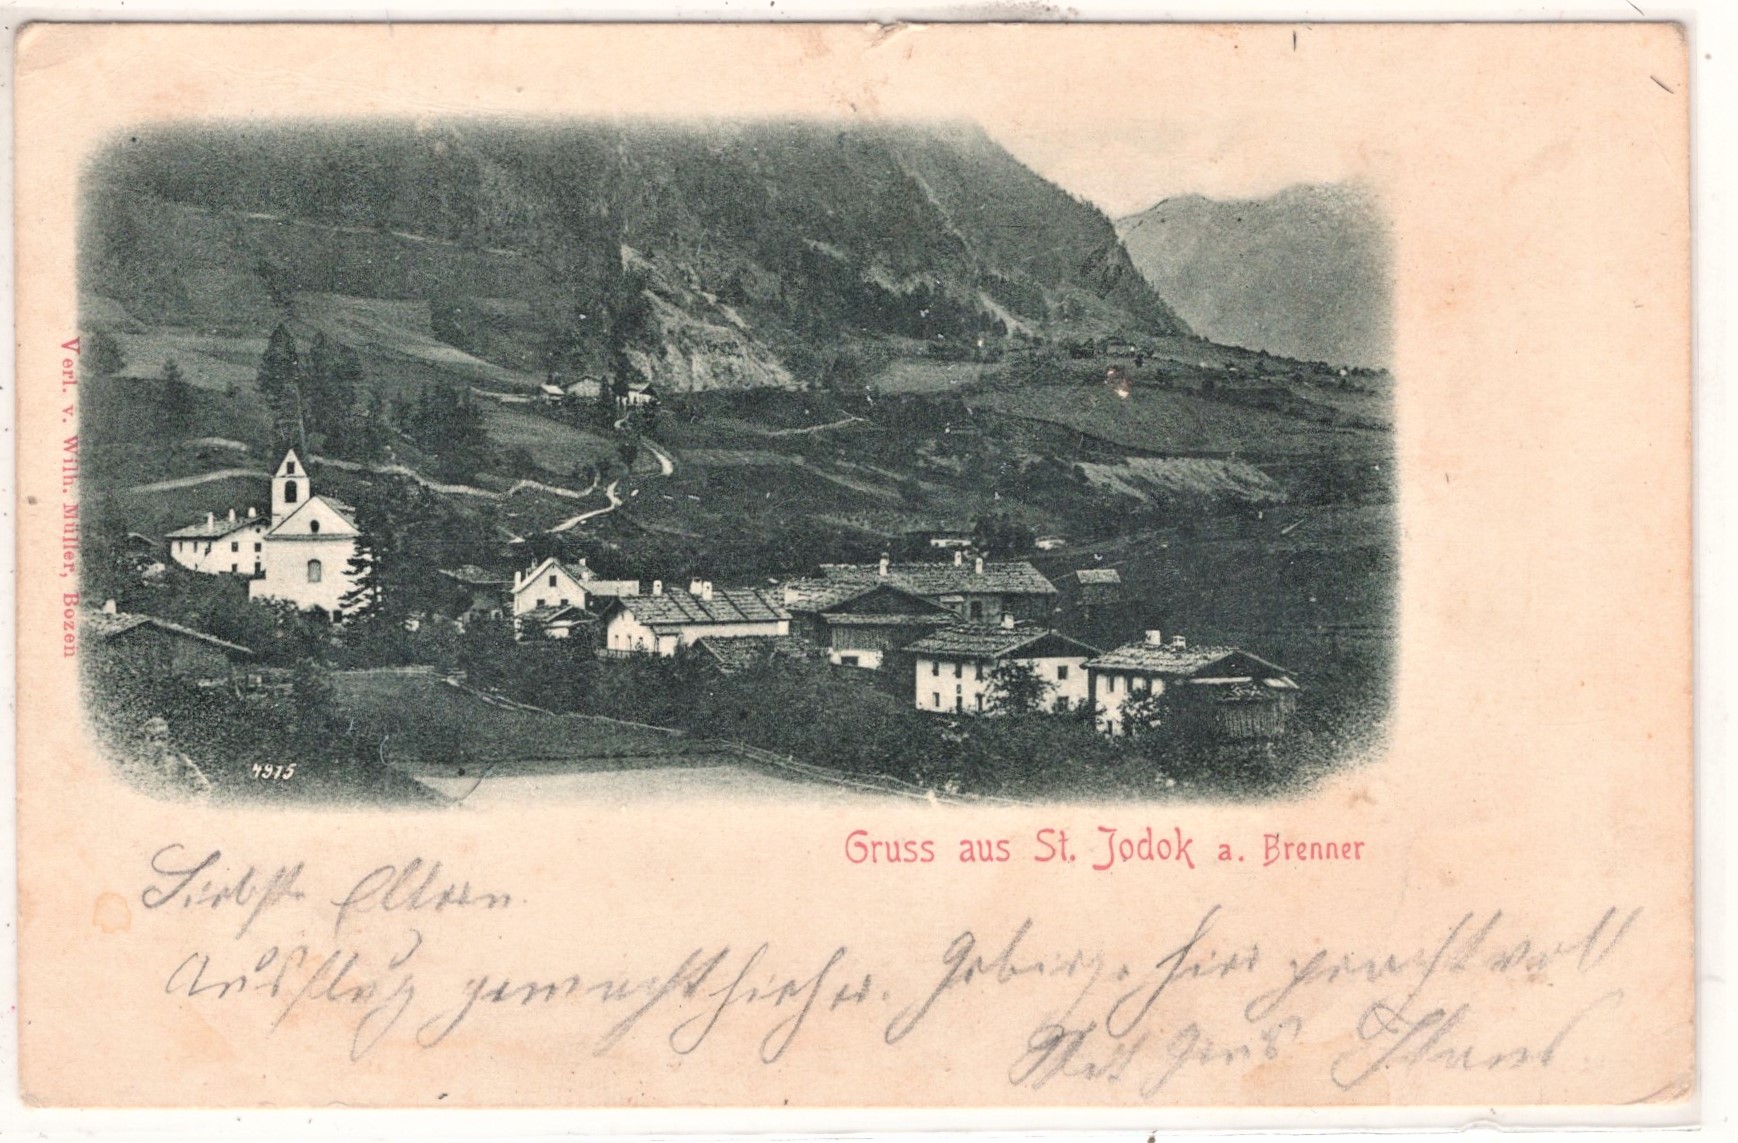 Verl. v. Wilh. Müller, Bozen
4975
Gruss aus St. Jodok a. Brenner
Liebste Eltern.
Ausflug gemacht hieher. Gebirge hier prachtvoll
Mit Grus Hans.